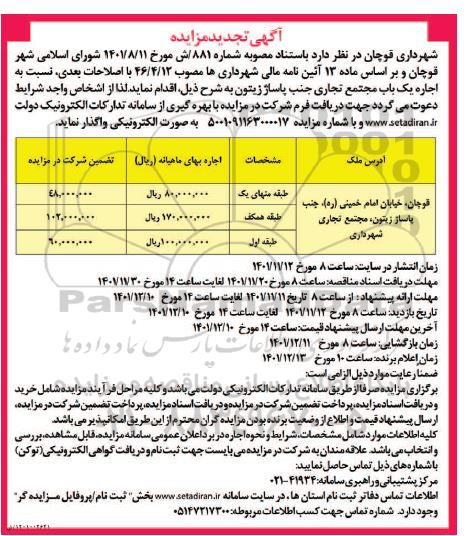 آگهی تجدید مزایده
شهرداری قوچان در نظر دارد باستناد مصوبه شماره ۸۸۱/ش مورخ ۱۴۰۱/۸/۱۱ شورای اسلامی شهر
قوچان و بر اساس ماده ۱۳ آئین نامه مالی شهرداری ها مصوب ۴۶/۴/۱۳ با اصلاحات بعدی، نسبت به
اجاره یک باب مجتمع تجاری جنب پاساژ زیتون به شرح ذیل، اقدام نماید. لذا از اشخاص واجد شرایط
دعوت می گردد جهت دریافت فرم شرکت در مزایده با بهره گیری از سامانه تدارکات الکترونیک دولت
www.setadiran.ir و با شماره مزایده ۵۰۰۱۰۹۱۱۶۳۰۰۰۰۱۷ به صورت الکترونیکی واگذار نماید.
آدرس ملک مشخصات اجاره بهای ماهیانه (ریال) تضمین شرکت در مزایده
قوچان، خیابان امام خمینی (ره)، جنب پاساژ زیتون، مجتمع تجاری شهرداری
طبقه منهای یک ۸۰,۰۰۰,۰۰۰ ریال ۴۸,۰۰۰,۰۰۰
طبقه همکف ۱۷۰,۰۰۰,۰۰۰ ریال ۱۰۲,۰۰۰,۰۰۰
طبقه اول ۱۰۰,۰۰۰,۰۰۰ ریال ۶۰,۰۰۰,۰۰۰
زمان انتشار در سایت: ساعت ۸ مورخ ۱۴۰۱/۱۱/۱۲
مهلت دریافت اسناد مناقصه: ساعت ۸ مورخ ۱۴۰۱/۱۱/۲۰ لغایت ساعت ۱۴ مورخ ۱۴۰۱/۱۱/۳۰
مهلت ارائه پیشنهاد : از ساعت ۸ تاریخ ۱۴۰۱/۱۱/۱۱ لغایت ساعت ۱۴ مورخ ۱۴۰۱/۱۲/۱۰
تاریخ بازدید: ساعت ۸ مورخ ۱۴۰۱/۱۱/۱۲ لغایت ساعت ۱۴ مورخ ۱۴۰۱/۱۲/۱۰
آخرین مهلت ارسال پیشنهاد قیمت: ساعت ۱۴ مورخ ۱۴۰۱/۱۲/۱۰
زمان بازگشایی: ساعت ۸ مورخ ۱۴۰۱/۱۲/۱۱
زمان اعلام برنده: ساعت ۱۰ مورخ ۱۴۰۱/۱۲/۱۳
ضمنا رعایت موارد ذیل الزامی است:
برگزاری مزایده صرفا از طریق سامانه تدارکات الکترونیکی دولت می باشد و کلیه مراحل فرآیند مزایده شامل خرید
و دریافت اسناد مزایده، پرداخت تضمین شرکت در مزایده و دریافت اسناد مزایده، پرداخت تضمین شرکت در مزایده،
ارسال پیشنهاد قیمت و اطلاع از وضعیت برنده بودن مزایده گران محترم از این طریق امکانپذیر می باشد.
کلیه اطلاعات موارد شامل مشخصات، شرایط و نحوه اجاره در برد اعلان عمومی سامانه مزایده، قابل مشاهده، بررسی
و انتخاب می باشد. علاقه مندان به شرکت در مزایده می بایست جهت ثبت نام و دریافت گواهی الکترونیکی (توکن)
با شماره های ذیل تماس حاصل نمایید:
مرکز پشتیبانی و راهبری سامانه: ۴۱۹۳۴-۰۲۱
اطلاعات تماس دفاتر ثبت نام استان ها، در سایت سامانه www.setadiran.ir بخش" ثبت نام/پروفایل مزایده گر"
وجود دارد. شماره تماس جهت کسب اطلاعات مربوطه: ۰۵۱۴۷۲۱۷۳۰۰